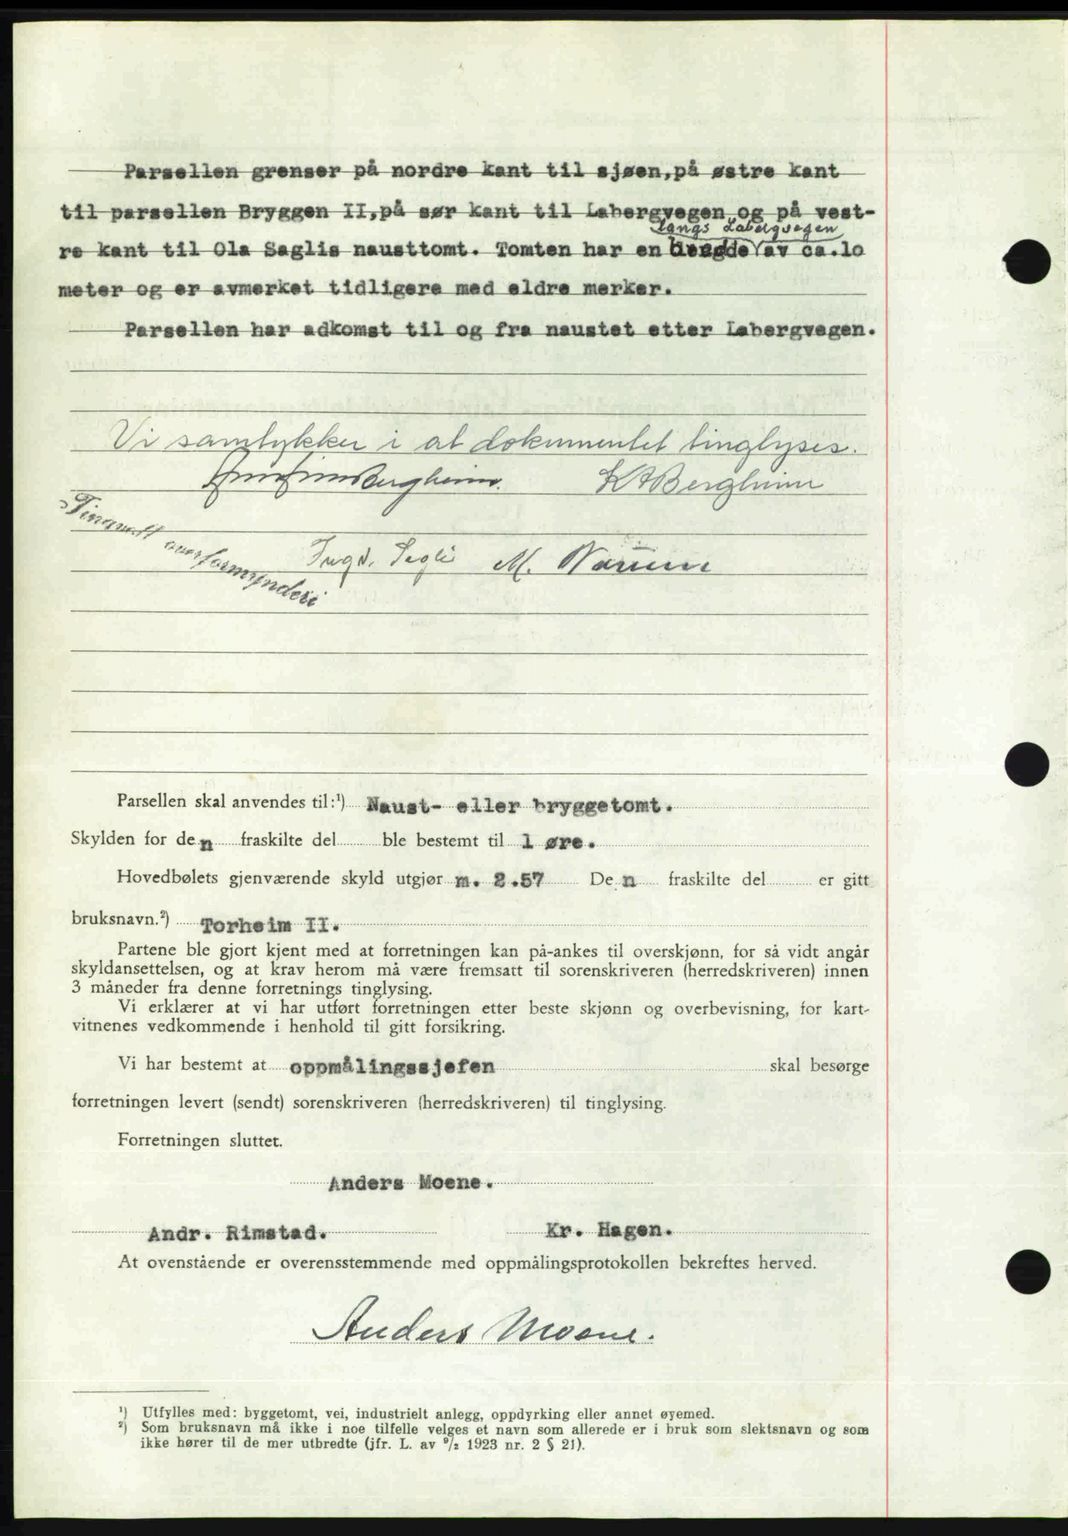 Parsellen grenser på nordre kant til sjøen,på østre kant
til parsellen Bryggen II,på sør kant til Labergvegen og på vest-
langs Labergvegen
re kant til Ola Saglis nausttomt. Tomten har en bredde av ca.lo
meter og er avmerket tidligere med eldre merker.
Parsellen har adkomst til og fra naustet etter Labergvegen.
Vi samtykker i at dokumentet tinglyses.
Bergheim. KABergheim
overformynderi
Ingv. Segli M.
Parsellen skal anvendes til:¹) Naust- eller bryggetomt.
Skylden for den fraskilte del ble bestemt til 1 øre.
Hovedbølets gjenværende skyld utgjør m. 2.57 Den fraskilte del er gitt
bruksnavn.²) Torheim II.
Partene ble gjort kjent med at forretningen kan på-ankes til overskjønn, for så vidt angår
skyldansettelsen, og at krav herom må være fremsatt til sorenskriveren (herredskriveren) innen
3 måneder fra denne forretnings tinglysing.
Vi erklærer at vi har utført forretningen etter beste skjønn og overbevisning, for kart-
vitnenes vedkommende i henhold til gitt forsikring.
Vi har bestemt at oppmålingssjefen skal besørge
forretningen levert (sendt) sorenskriveren (herredskriveren) til tinglysing.
Forretningen sluttet.
Anders Moene.
Andr. Rimstad. Kr. Hagen.
At ovenstående er overensstemmende med oppmålingsprotokollen bekreftes herved.
Anders Moene.
¹) Utfylles med: byggetomt, vei, industrielt anlegg, oppdyrking eller annet øyemed.
²) Som bruksnavn må ikke i noe tilfelle velges et navn som allerede er i bruk som slektsnavn og som
ikke hører til de mer utbredte (jfr. L. av 9/2 1923 nr. 2 § 21).